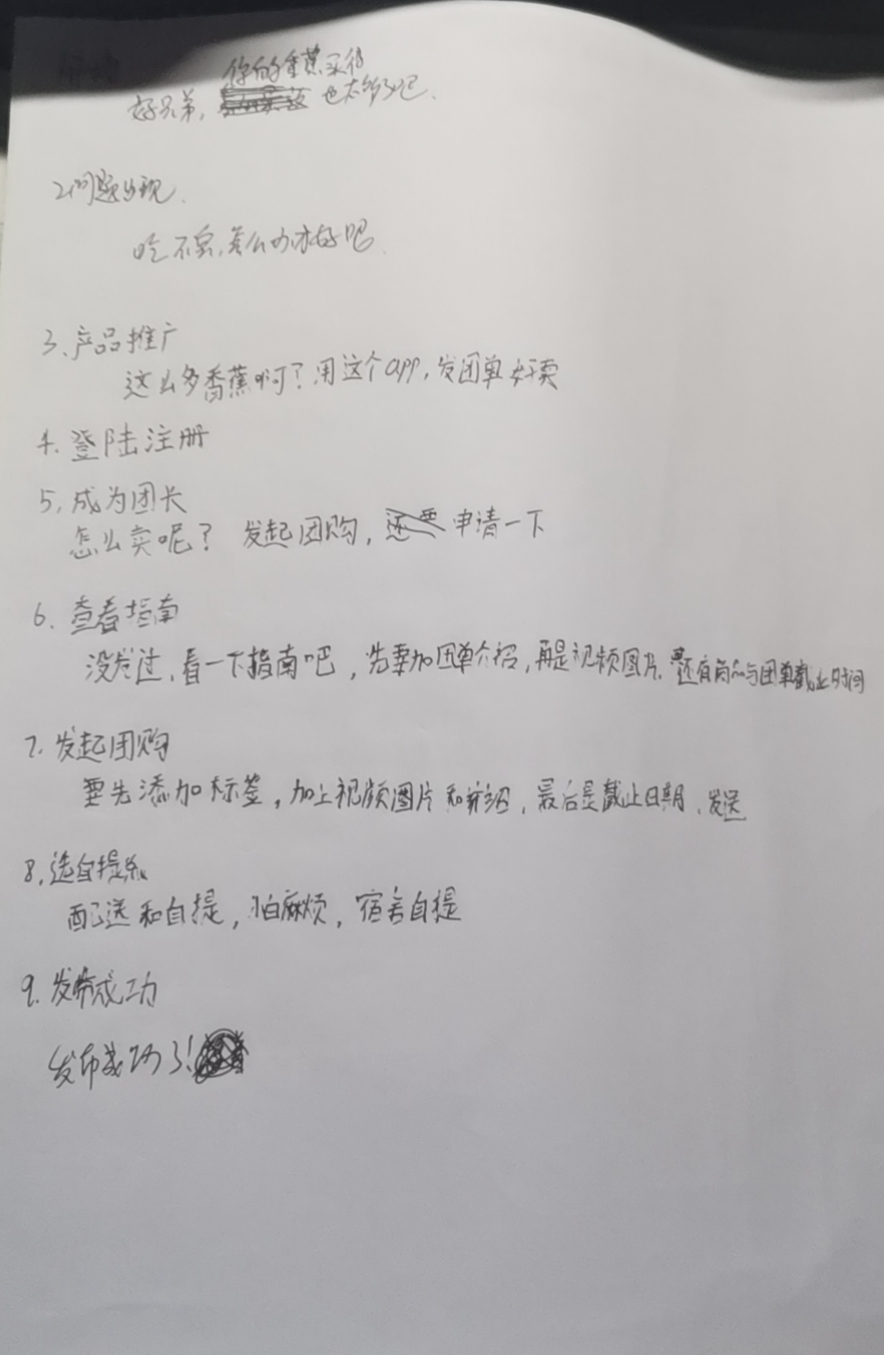 你的香蕉买得
好兄弟, 也太多了吧.
2.问题出现.
吃不完,怎么办才好呢.
3.产品推广
这么多香蕉啊?用这个app,发团单好卖
4.登陆注册
5.成为团长
怎么卖呢? 发起团购,还要申请一下
6.查看指南
没发过,看一下指南吧,先要加团单介绍,再是视频图片,还有商品与团单截止时间
7.发起团购
要先添加标签,加上视频图片和介绍,最后是截止日期,发送
8.选自提点
配送和自提,怕麻烦,宿舍自提
9.发布成功
发布成功了!